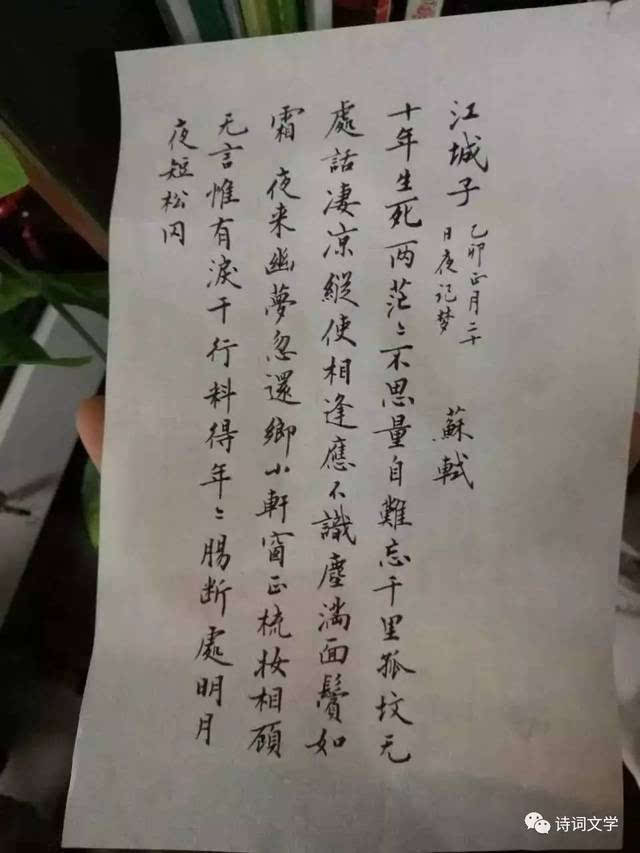 江城子 乙卯正月二十
日夜记梦 蘇軾
十年生死两茫〻不思量自難忘千里孤坟无
處話凄凉縱使相逢應不識塵满面鬓如
霜 夜来幽夢忽還鄉小軒窗正梳妆相顾
无言惟有淚千行料得年〻腸断處明月
夜短松冈
诗词文学